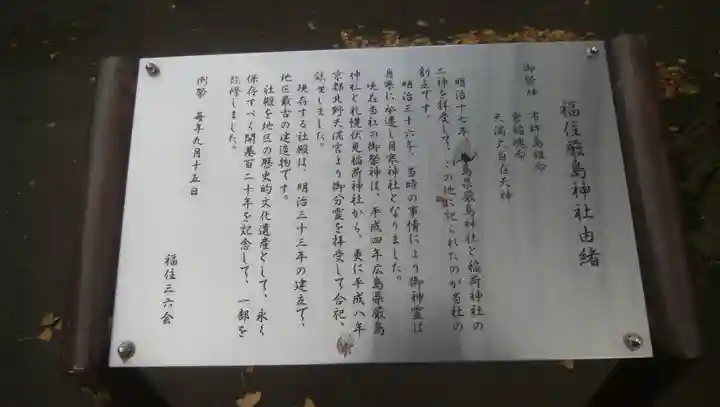 福住厳島神社由緒
御祭神
市杵島姫命
倉稲魂命
天満大自在天神
明治十七年 島県厳島神社と稲荷神社の
二神を拝受して、この地に祀られたのが当社の
創立です。
明治三十六年、当時の事情により御神霊は
月寒に奉遷し月寒神社となりました。
現在当社の御祭神は、平成四年広島県厳島
神社と札幌伏見稲荷神社から、更に平成八年
京都北野天満宮より御分霊を拝受して合祀、
鎮坐しました。
現存する社殿は、明治三十三年の建立で、
地区最古の建造物です。
社殿を地区の歴史的文化遺産として、永く
保存すべく開基百二十年を記念して、一部を
改修しました。
例祭 毎年九月十五日
福住三六会